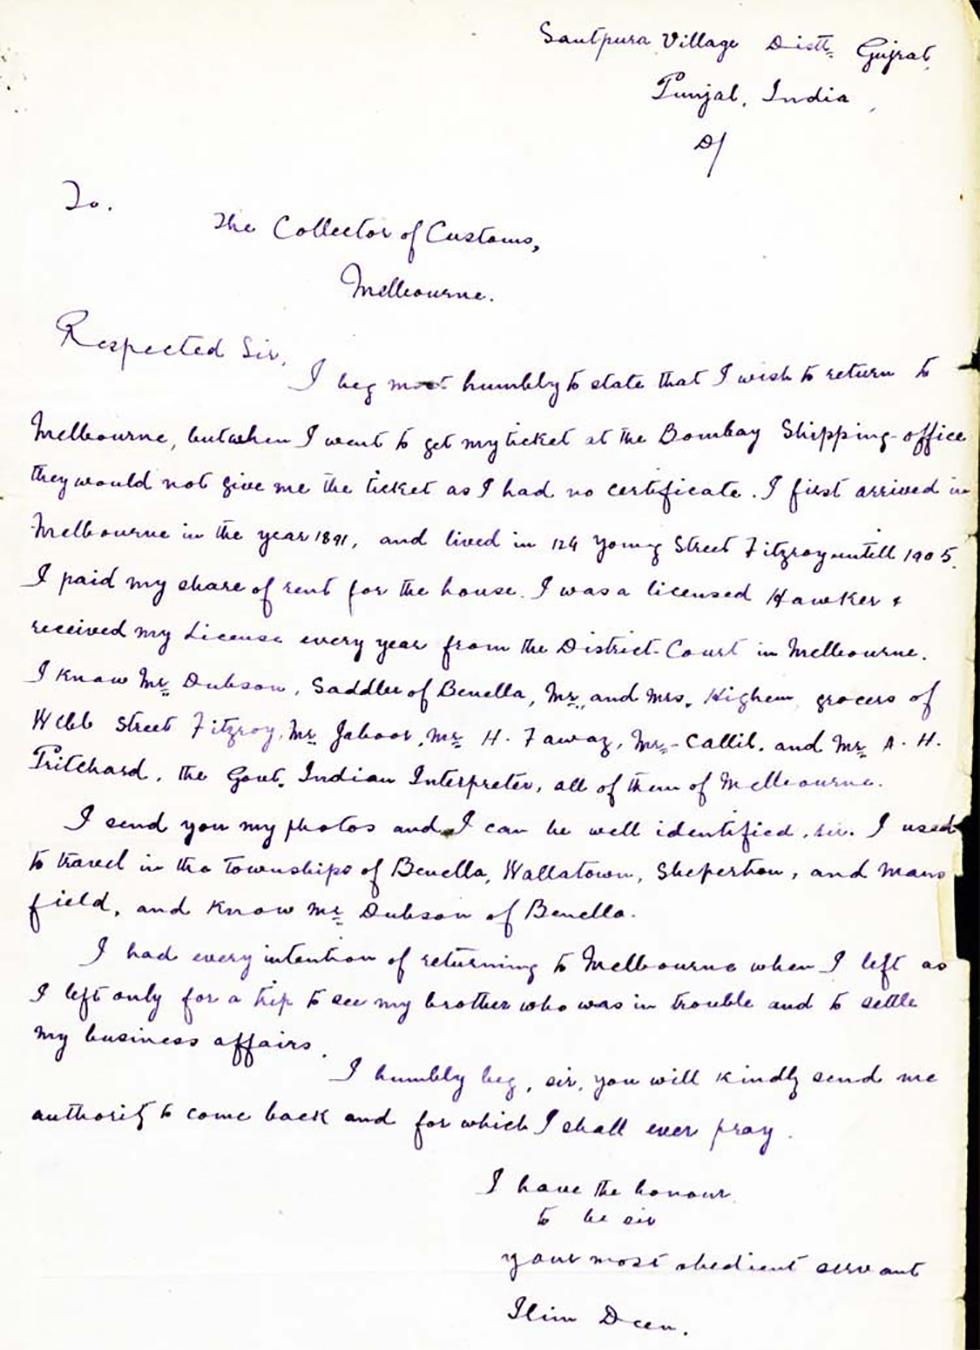 Santpura Village Distt. Gujrat,
Punjab, India,
D/
To.
The Collector of Customs,
Melbourne.
Respected Sir,
I beg most humbly to state that I wish to return to
Melbourne, but when I went to get my ticket at the Bombay Shipping-office
they would not give me the ticket as I had no certificate. I first arrived in
Melbourne in the year 1891, and lived in 124 Young Street Fitzroy untill 1905.
I paid my share of rent for the house. I was a licensed Hawker &
received my License every year from the District-Court in Melbourne.
I know Mr. Dubson, Saddler of Benella, Mr. and Mrs. Highem, grocers of
Webb Street Fitzroy, Mr. Jaboor, Mr. H. Fawaz, Mr. Callil, and Mr. A. H.
Pritchard, the Govt. Indian Interpreter, all of them of Melbourne.
I send you my photos and I can be well identified, sir. I used
to travel in the townships of Benella, Wallatown, Sheperton, and Mans
field, and know Mr. Dubson of Benella.
I had every intention of returning to Melbourne when I left as
I left only for a trip to see my brother who was in trouble and to settle
my business affairs.
I humbly beg, sir, you will kindly send me
authority to come back and for which I shall ever pray.
I have the honour
to be sir
your most obedient servant
Ilim Deen.